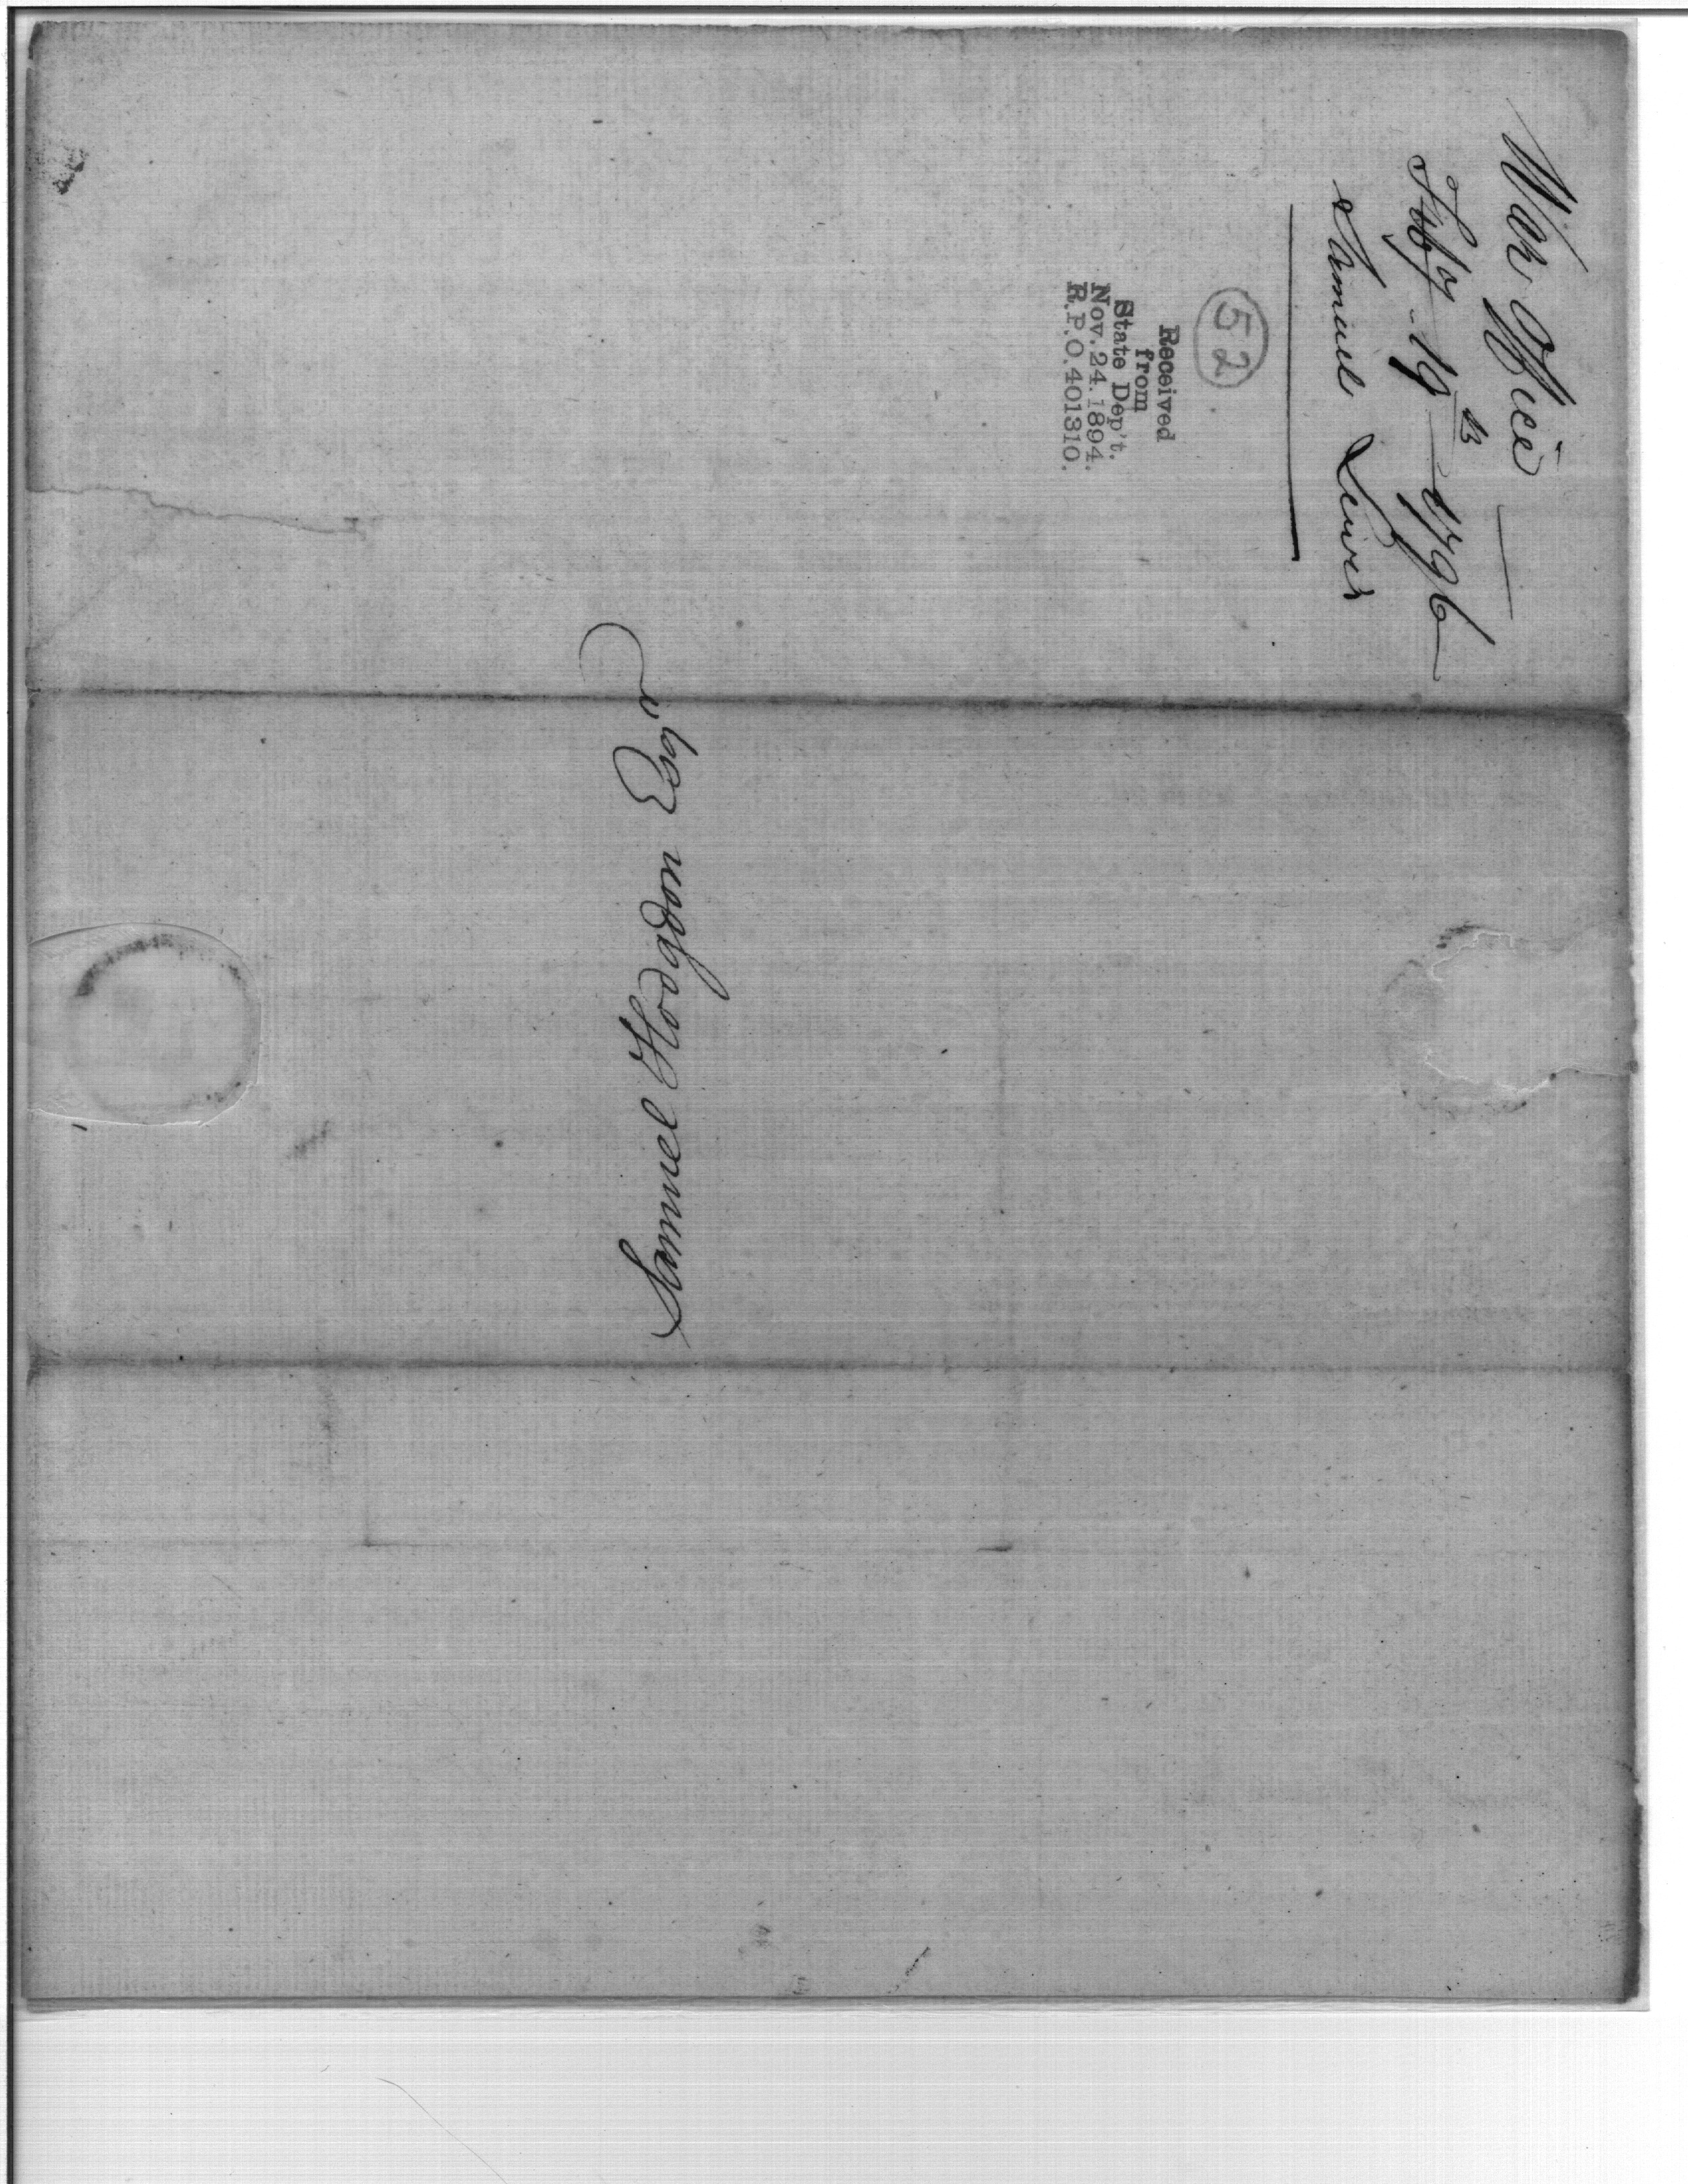 War Office
Feby 19th 1796
Samuel Lewis
52
Received
from
State Dep't.
Nov. 24. 1894.
R.P.O. 401310.
Samuel Hodgdon Esqr